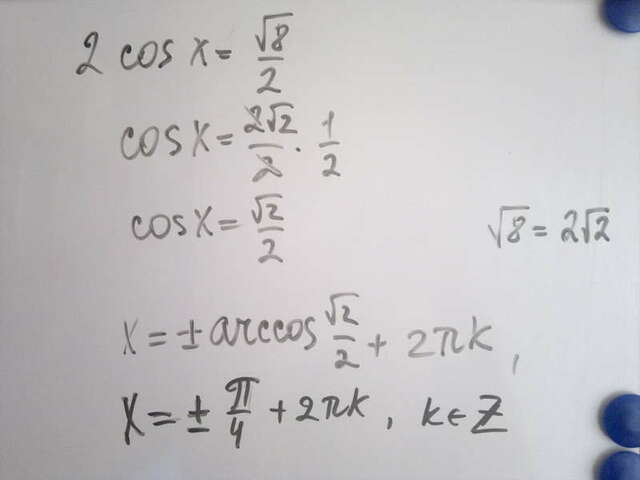 2 cos x = √8/2
cos x = 2√2/2 · 1/2
cos x = √2/2
√8 = 2√2
x = ± arccos √2/2 + 2πk,
x = ± π/4 + 2πk, k ∈ Z